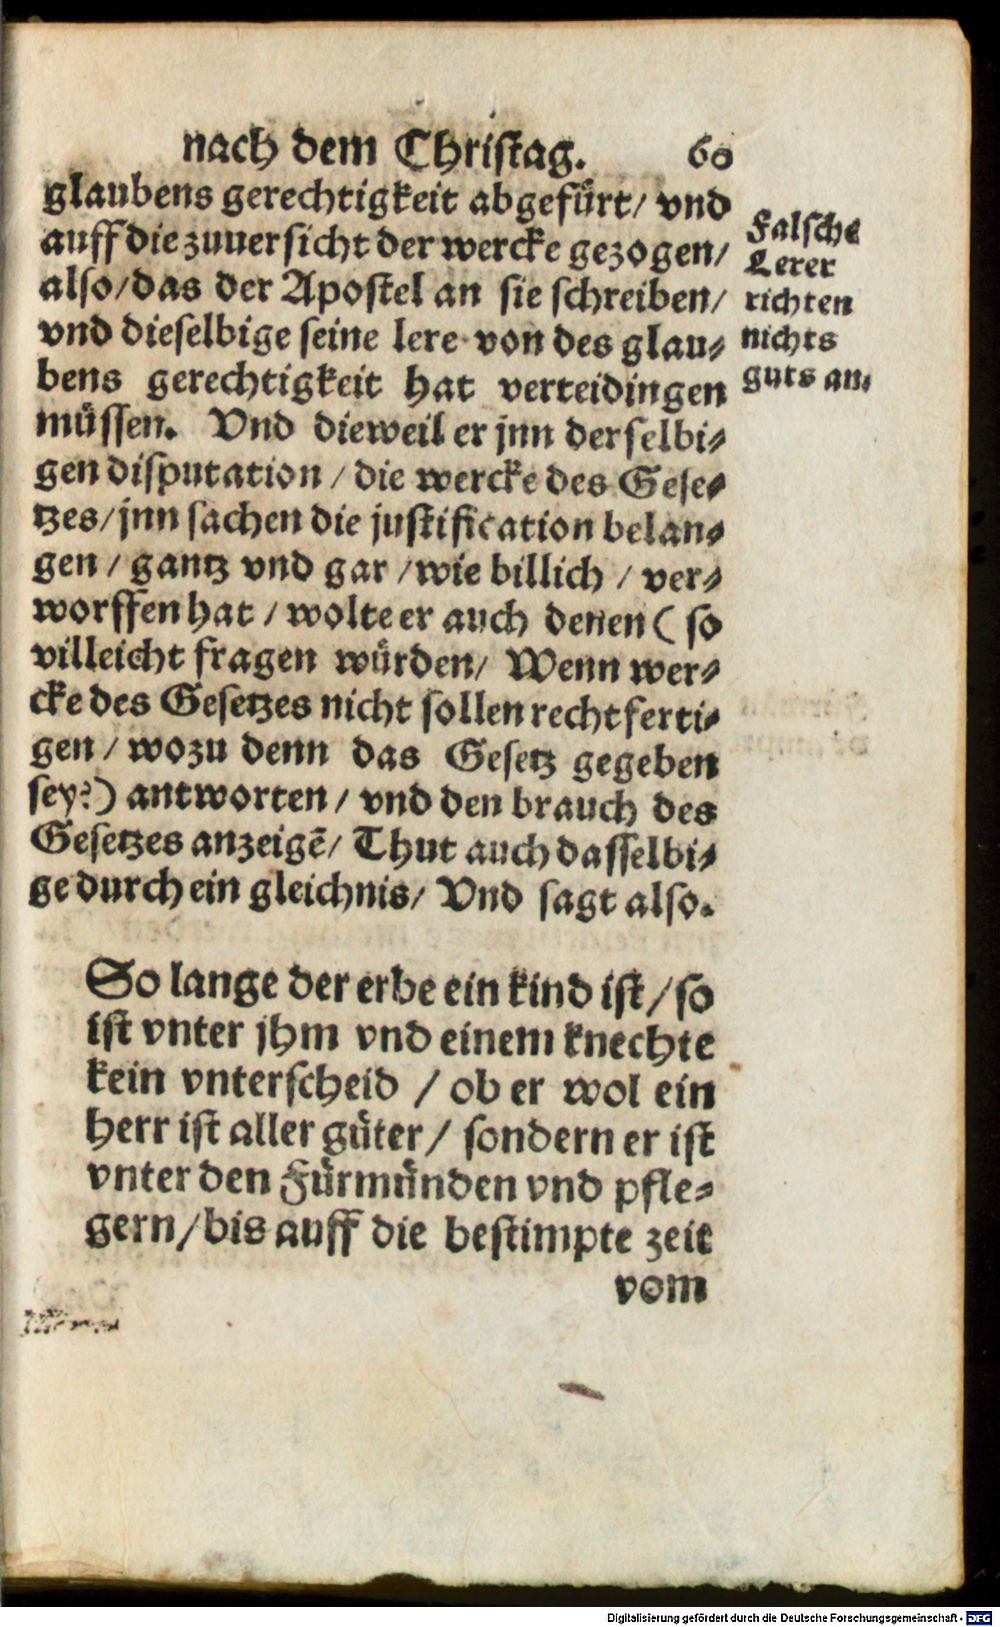 nach dem Christag. 60
glaubens gerechtigkeit abgefürt/ vnd
auff die zuuersicht der wercke gezogen/
also/das der Apostel an sie schreiben/
vnd dieselbige seine lere von des glau-
bens gerechtigkeit hat verteidingen
müssen. Vnd dieweil er jnn derselbi-
gen disputation / die wercke des Gese-
tzes/jnn sachen die justification belan-
gen / gantz vnd gar /wie billich / ver-
worffen hat / wolte er auch denen ( so
villeicht fragen würden/ Wenn wer-
cke des Gesetzes nicht sollen rechtferti-
gen / wozu denn das Gesetz gegeben
sey?) antworten / vnd den brauch des
Gesetzes anzeigē/ Thut auch dasselbi-
ge durch ein gleichnis/ Vnd sagt also.
Falsche
Lerer
richten
nichts
guts an.
So lange der erbe ein kind ist/so
ist vnter jhm vnd einem knechte
kein vnterscheid / ob er wol ein
herr ist aller güter/ sondern er ist
vnter den Fürmünden vnd pfle-
gern/bis auff die bestimpte zeit
vom
Digitalisierung gefördert durch die Deutsche Forschungsgemeinschaft - DFG